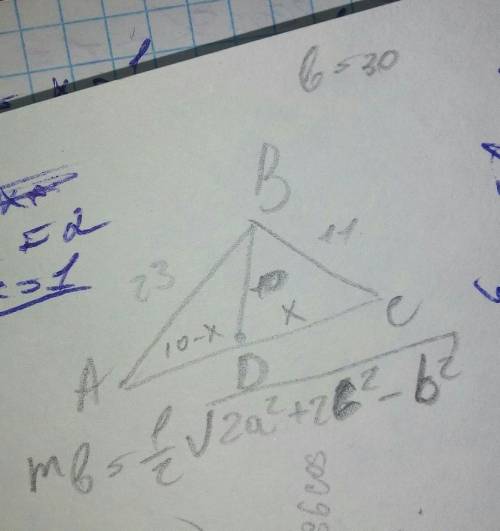 b = 30
= 2
= 1
B
23
11
10
10-x
x
A
D
C
mb = 1/2 √2a²+2c²-b²
cos